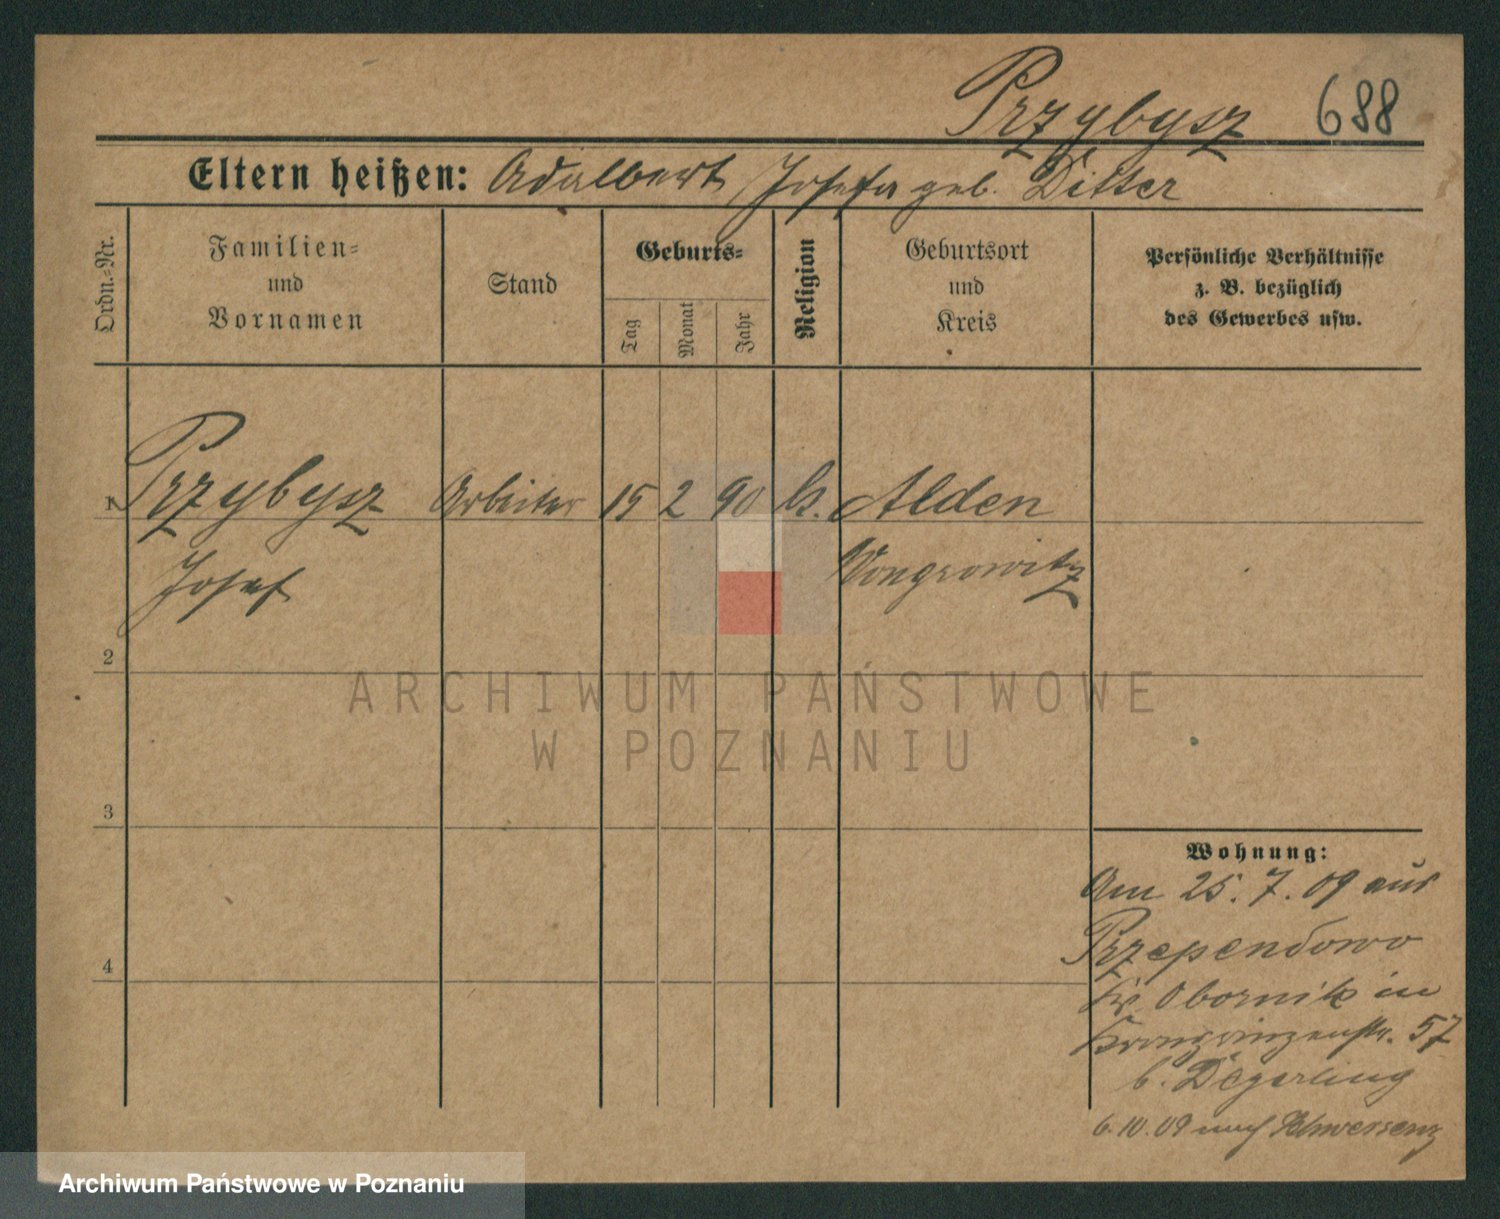 Przybysz 688
Eltern heißen: Adalbert Josefa geb. Ditter
Ordn.-Nr.
Familien-
und
Vornamen
Stand
Geburts-
Tag
Monat
Jahr
Religion
Geburtsort
und
Kreis
Persönliche Verhältnisse
z. B. bezüglich
des Gewerbes usw.
1 Przybysz Arbeiter 15 2 90 k. Alden
Josef Wongrowitz
2
3
4
Wohnung:
Am 25.7.09 aus
Przependowo
Kr. Obornik in
Kronprinzenstr. 57
b. Degerling
6.10.09 nach Schwersenz
ARCHIWUM PAŃSTWOWE
W POZNANIU
Archiwum Państwowe w Poznaniu